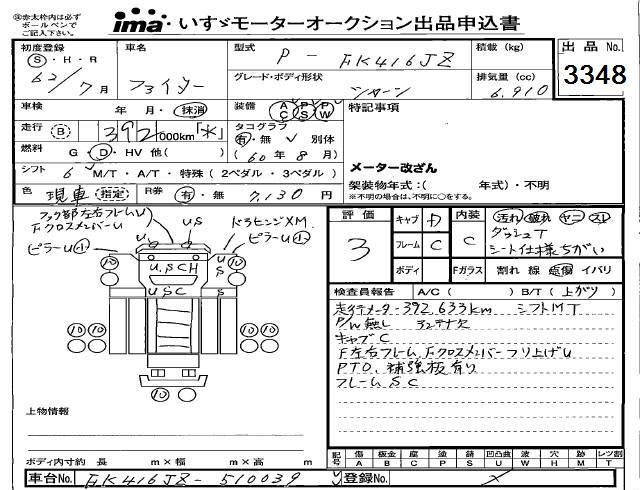 ※赤太枠内は必ず
ボールペンで
ご記入下さい。
ima・いすゞモーターオークション出品申込書
初度登録
車名
型式
P - FK416JZ
積載 (kg)
出品 No.
S・H・R
62/7月
ファイター
グレード・ボディ形状
排気量 (cc)
6,910
3348
車検
年 月・抹消
装備
AC PS PW
特記事項
走行 B 392,000km「*」
タコグラフ
有・無 別体
(60年8月)
燃料 G・D・HV 他( )
シフト 6 M/T・A/T・特殊(2ペダル・3ペダル)
メーター改ざん
架装物年式:( 年式)・不明
※不明の場合は、不明に○をする。
色 現車 指定 R券 有・無 7,130 円
フック部左右フレームU
FクロスメンバーU
ピラーU小
US
US
ドラヒンジXM
ピラーU小
USCH
USC
10
10
10
10
10
10
10
評価
3
キャブ
フレーム C
ボディ
内装 C
Fガラス
汚れ 破れ ヤニ スレ
ダッシュT
シート仕様ちがい
割れ 線 点傷 イバリ
検査員報告 A/C( ) B/T(上がり)
走行メーター392,633km シフトMT
P/W無し アンテナ欠
キャブC
F左右フレーム、Fクロスメンバーフリ上げU
PTO、補強板有り
フレームSC
上物情報
ボディ内寸約 長 m×幅 m×高 m
記号 傷 A 板金 B 腐 C 塗 P 錆 S 凹凸曲 U 波 W 穴 H 跡 M レツ割 T
車台No. FK416JZ-510039
登録No.